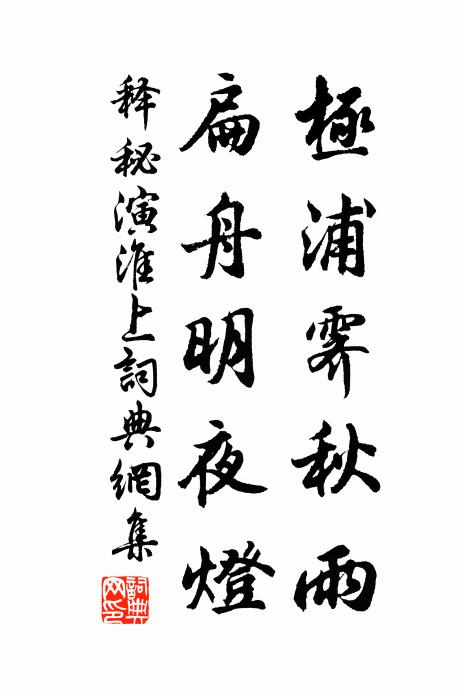 極浦霽秋雨
扁舟明夜燈
释秘演淮上詞典網集
詞典網印